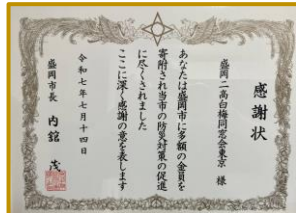 感謝状
盛岡二高白梅同窓会東京 様
あなたは盛岡市に多額の金員を
寄附され当市の防災対策の促進
に尽くされました
ここに深く感謝の意を表します
令和七年七月十四日
盛岡市長 内舘 茂